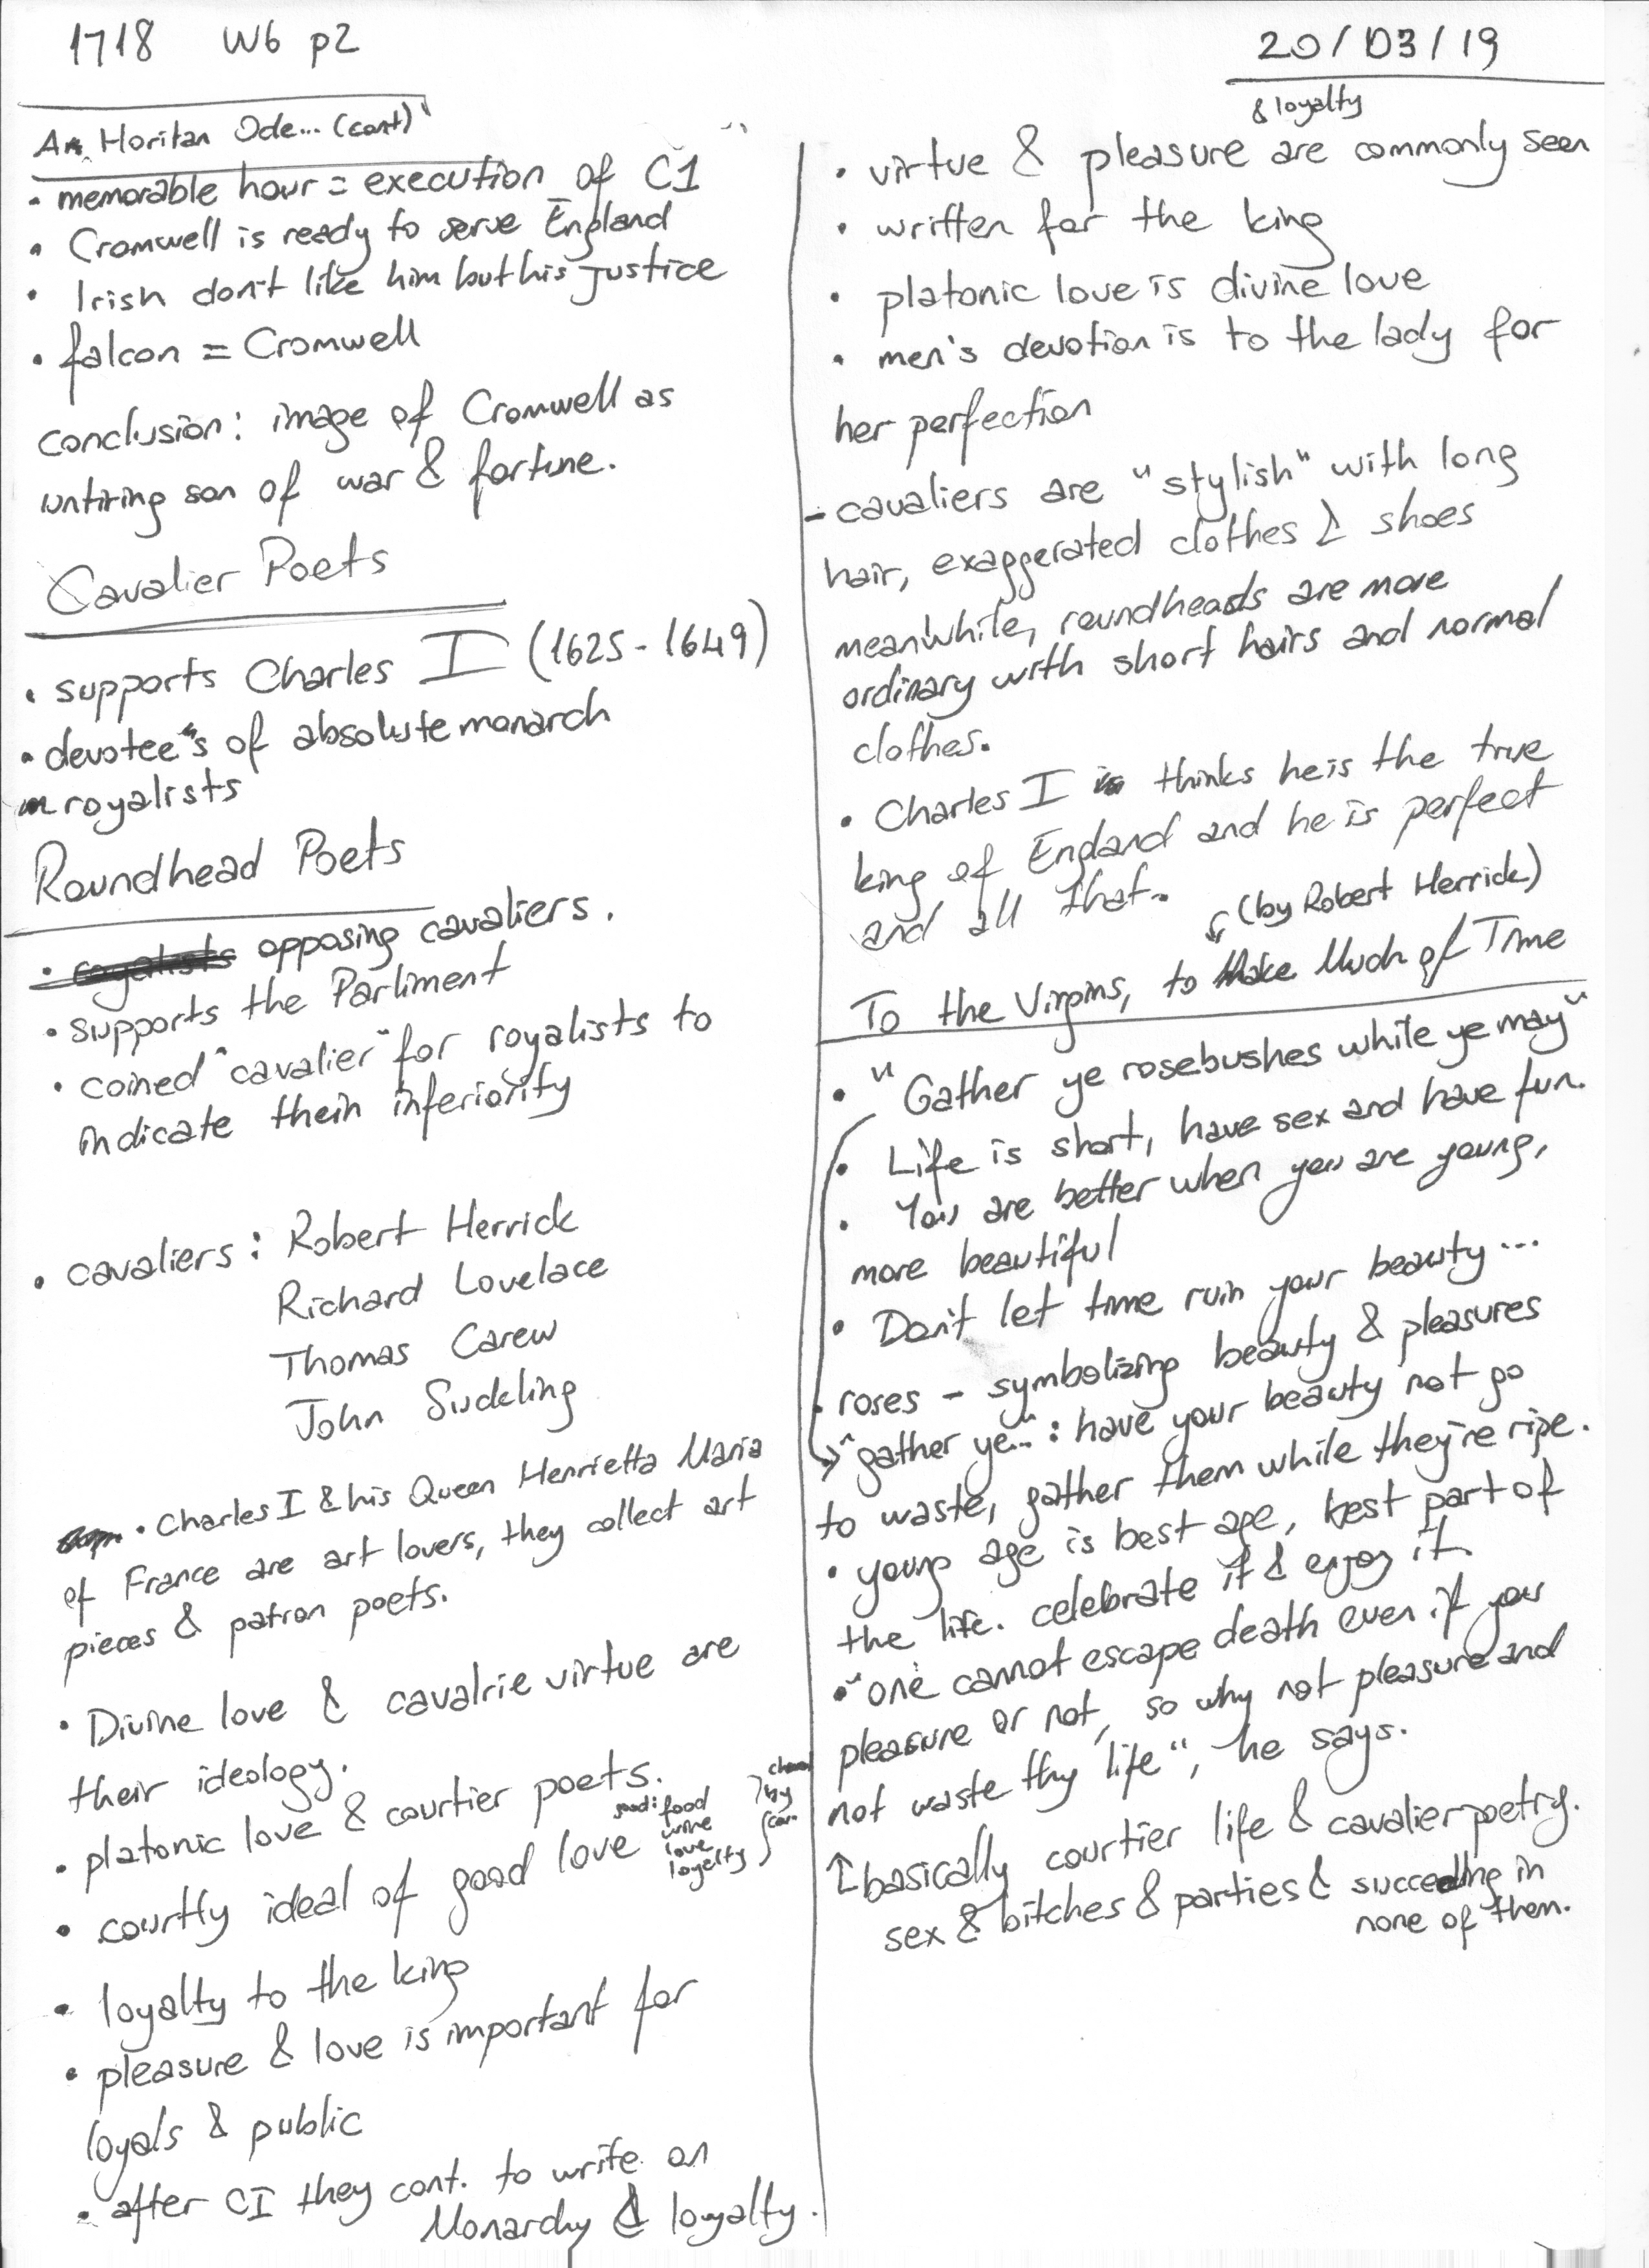 1718 W6 p2
20/03/19
An Horitan Ode... (cont)
• memorable hour = execution of C1
• Cromwell is ready to serve England
• Irish don't like him but his justice
• falcon = Cromwell
conclusion: image of Cromwell as
untiring son of war & fortune.
Cavalier Poets
• supports Charles I (1625-1649)
• devotee's of absolute monarch
royalists
Roundhead Poets
• royalists opposing cavaliers.
• supports the Parliment
• coined "cavalier" for royalists to
indicate their inferiority
• cavaliers: Robert Herrick
Richard Lovelace
Thomas Carew
John Suckling
• Charles I & his Queen Henrietta Maria
of France are art lovers, they collect art
pieces & patron poets.
• Divine love & cavalrie virtue are
their ideology.
• platonic love & courtier poets.
• courtly ideal of good love
good: food
wine
love
loyalty
by
• loyalty to the king
• pleasure & love is important for
loyals & public
• after CI they cont. to write on
Monarchy & loyalty.
& loyalty
• virtue & pleasure are commonly seen
• written for the king
• platonic love is divine love
• men's devotion is to the lady for
her perfection
- cavaliers are "stylish" with long
hair, exaggerated clothes & shoes
meanwhile, roundheads are more
ordinary with short hairs and normal
clothes.
• Charles I thinks he is the true
king of England and he is perfect
and all that..
(by Robert Herrick)
To the Virgins, to Make Much of Time
• "Gather ye rosebushes while ye may"
• Life is short, have sex and have fun.
• You are better when you are young,
more beautiful
• Don't let time ruin your beauty...
• roses - symbolizing beauty & pleasures
→ "gather ye..": have your beauty not go
to waste, gather them while they're ripe.
• young age is best age, best part of
the life. celebrate it & enjoy it.
• "one cannot escape death even if you
pleasure or not, so why not pleasure and
not waste thy life", he says.
↑ basically courtier life & cavalier poetry.
sex & bitches & parties & succeeding in
none of them.